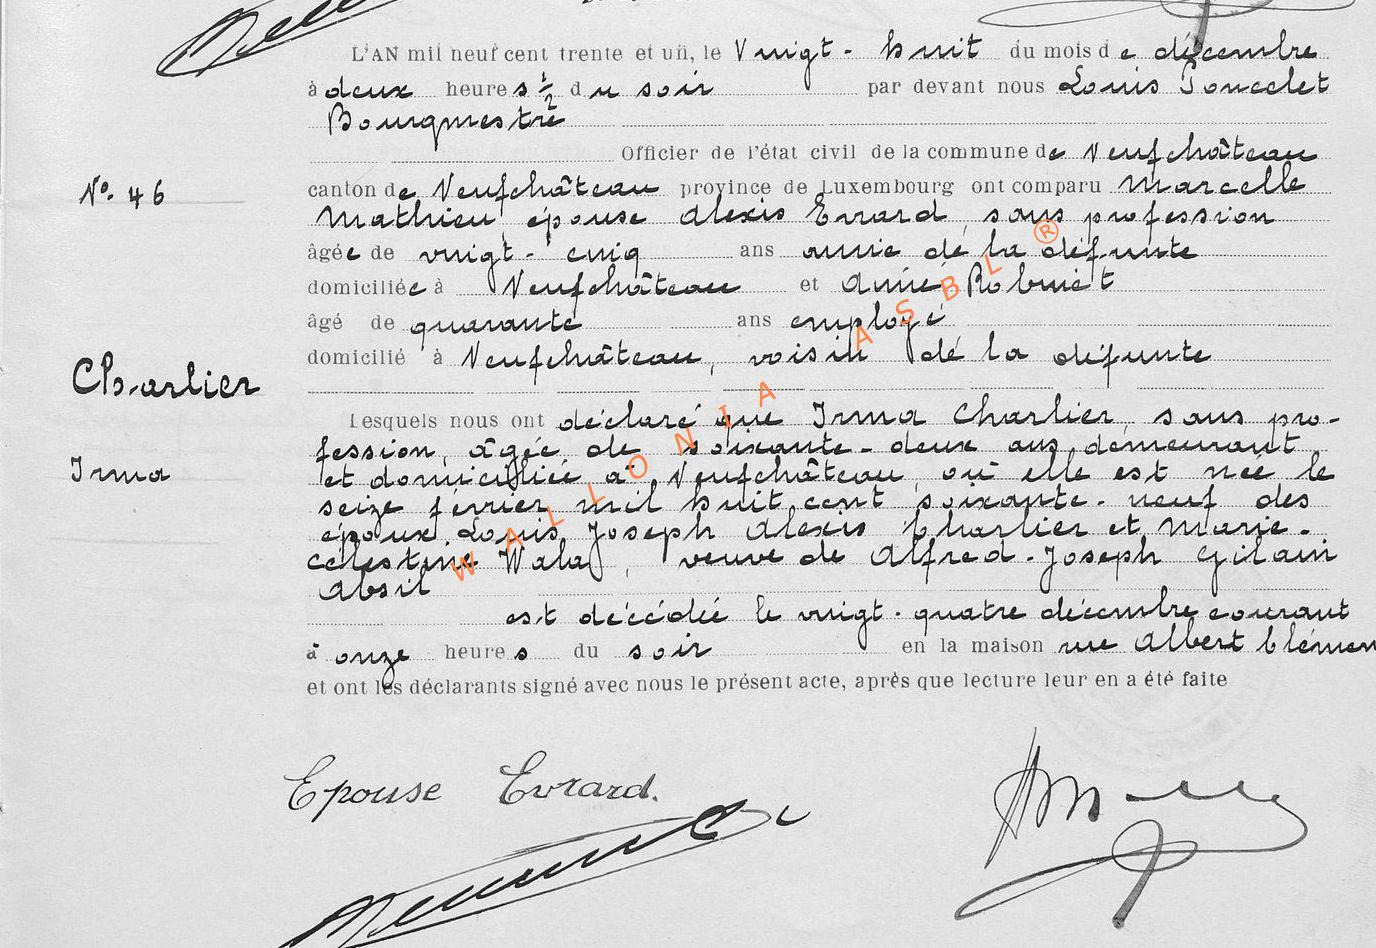 L'AN mil neuf cent trente et un, le Vingt-huit du mois de décembre
à deux heures ½ du soir par devant nous Louis Poncelet
Bourgmestre
Officier de l'état civil de la commune de Neufchâteau
N° 46
canton de Neufchâteau province de Luxembourg ont comparu Marcelle
Mathieu épouse Alexis Evrard, sans profession
âgée de vingt-cinq ans amie de la défunte
domiciliée à Neufchâteau et Aimé Robinet
âgé de quarante ans employé
domicilié à Neufchâteau, voisin de la défunte
Charlier
Irma
Lesquels nous ont déclaré que Irma Charlier, sans pro-
fession, âgée de soixante-deux ans demeurant
et domiciliée à Neufchâteau, où elle est née le
seize février mil huit cent soixante-neuf des
époux Louis Joseph Alexis Charlier et Marie-
Célestine, veuve de Alfred-Joseph Gilain
Absil
est décédée le vingt-quatre décembre courant
à onze heures du soir en la maison rue Albert Clémen
et ont les déclarants signé avec nous le présent acte, après que lecture leur en a été faite
Epouse Evrard.
WALLONIA ASBL ®